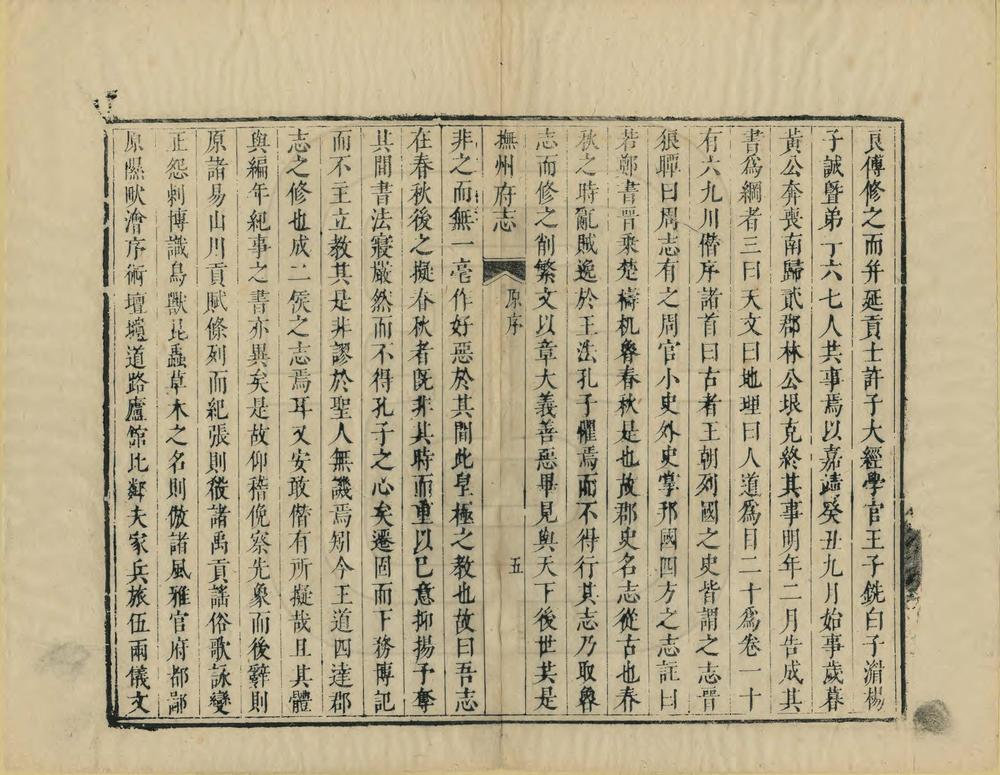 良傅修之而并延貢士許子大經學官王子銑白子湄楊
子誠暨弟丁六七人共事焉以嘉靖癸丑九月始事歲暮
黃公奔喪南歸貳郡林公垠克終其事明年二月告成其
書爲綱者三曰天文曰地理曰人道爲目二十爲卷一十
有六九川僭序諸首曰古者王朝列國之史皆謂之志晉
狼瞫曰周志有之周官小史外史掌邦國四方之志註曰
若鄭書晉乘楚檮杌魯春秋是也故郡史名志從古也春
秋之時亂賊逸於王法孔子懼焉而不得行其志乃取魯
志而修之削繁文以章大義善惡畢見與天下後世共是
撫州府志 原序 五
非之而無一毫作好惡於其間此皇極之教也故曰吾志
在春秋後之擬春秋者既非其時而重以巳意抑揚予奪
其間書法寖嚴然而不得孔子之心矣遷固而下務傳記
而不主立教其是非謬於聖人無譏焉矧今王道四達郡
志之修也成二侯之志焉耳又安敢僭有所擬哉且其體
與編年紀事之書亦異矣是故仰稽俛察先象而後辭則
原諸易山川貢賦條列而紀張則倣諸禹貢謠俗歌詠變
正怨刺博識鳥獸昆蟲草木之名則倣諸風雅官府都鄙
原隰畎澮序術壇壝道路廬館比鄰夫家兵旅伍兩儀文